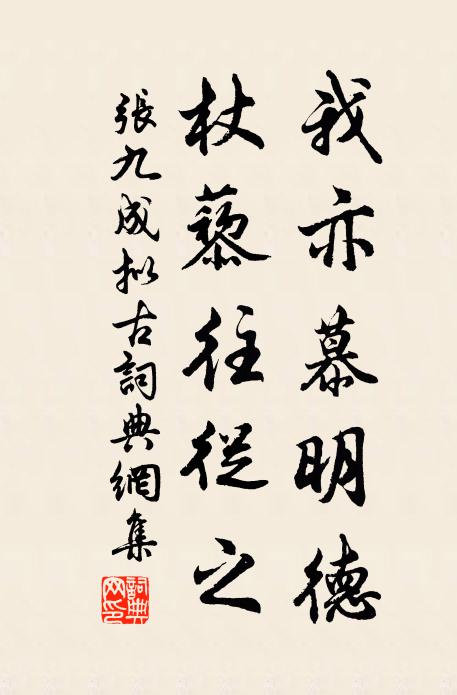 我亦慕明德
杖藜往從之
張九成拟古詞典網集
詞典网印